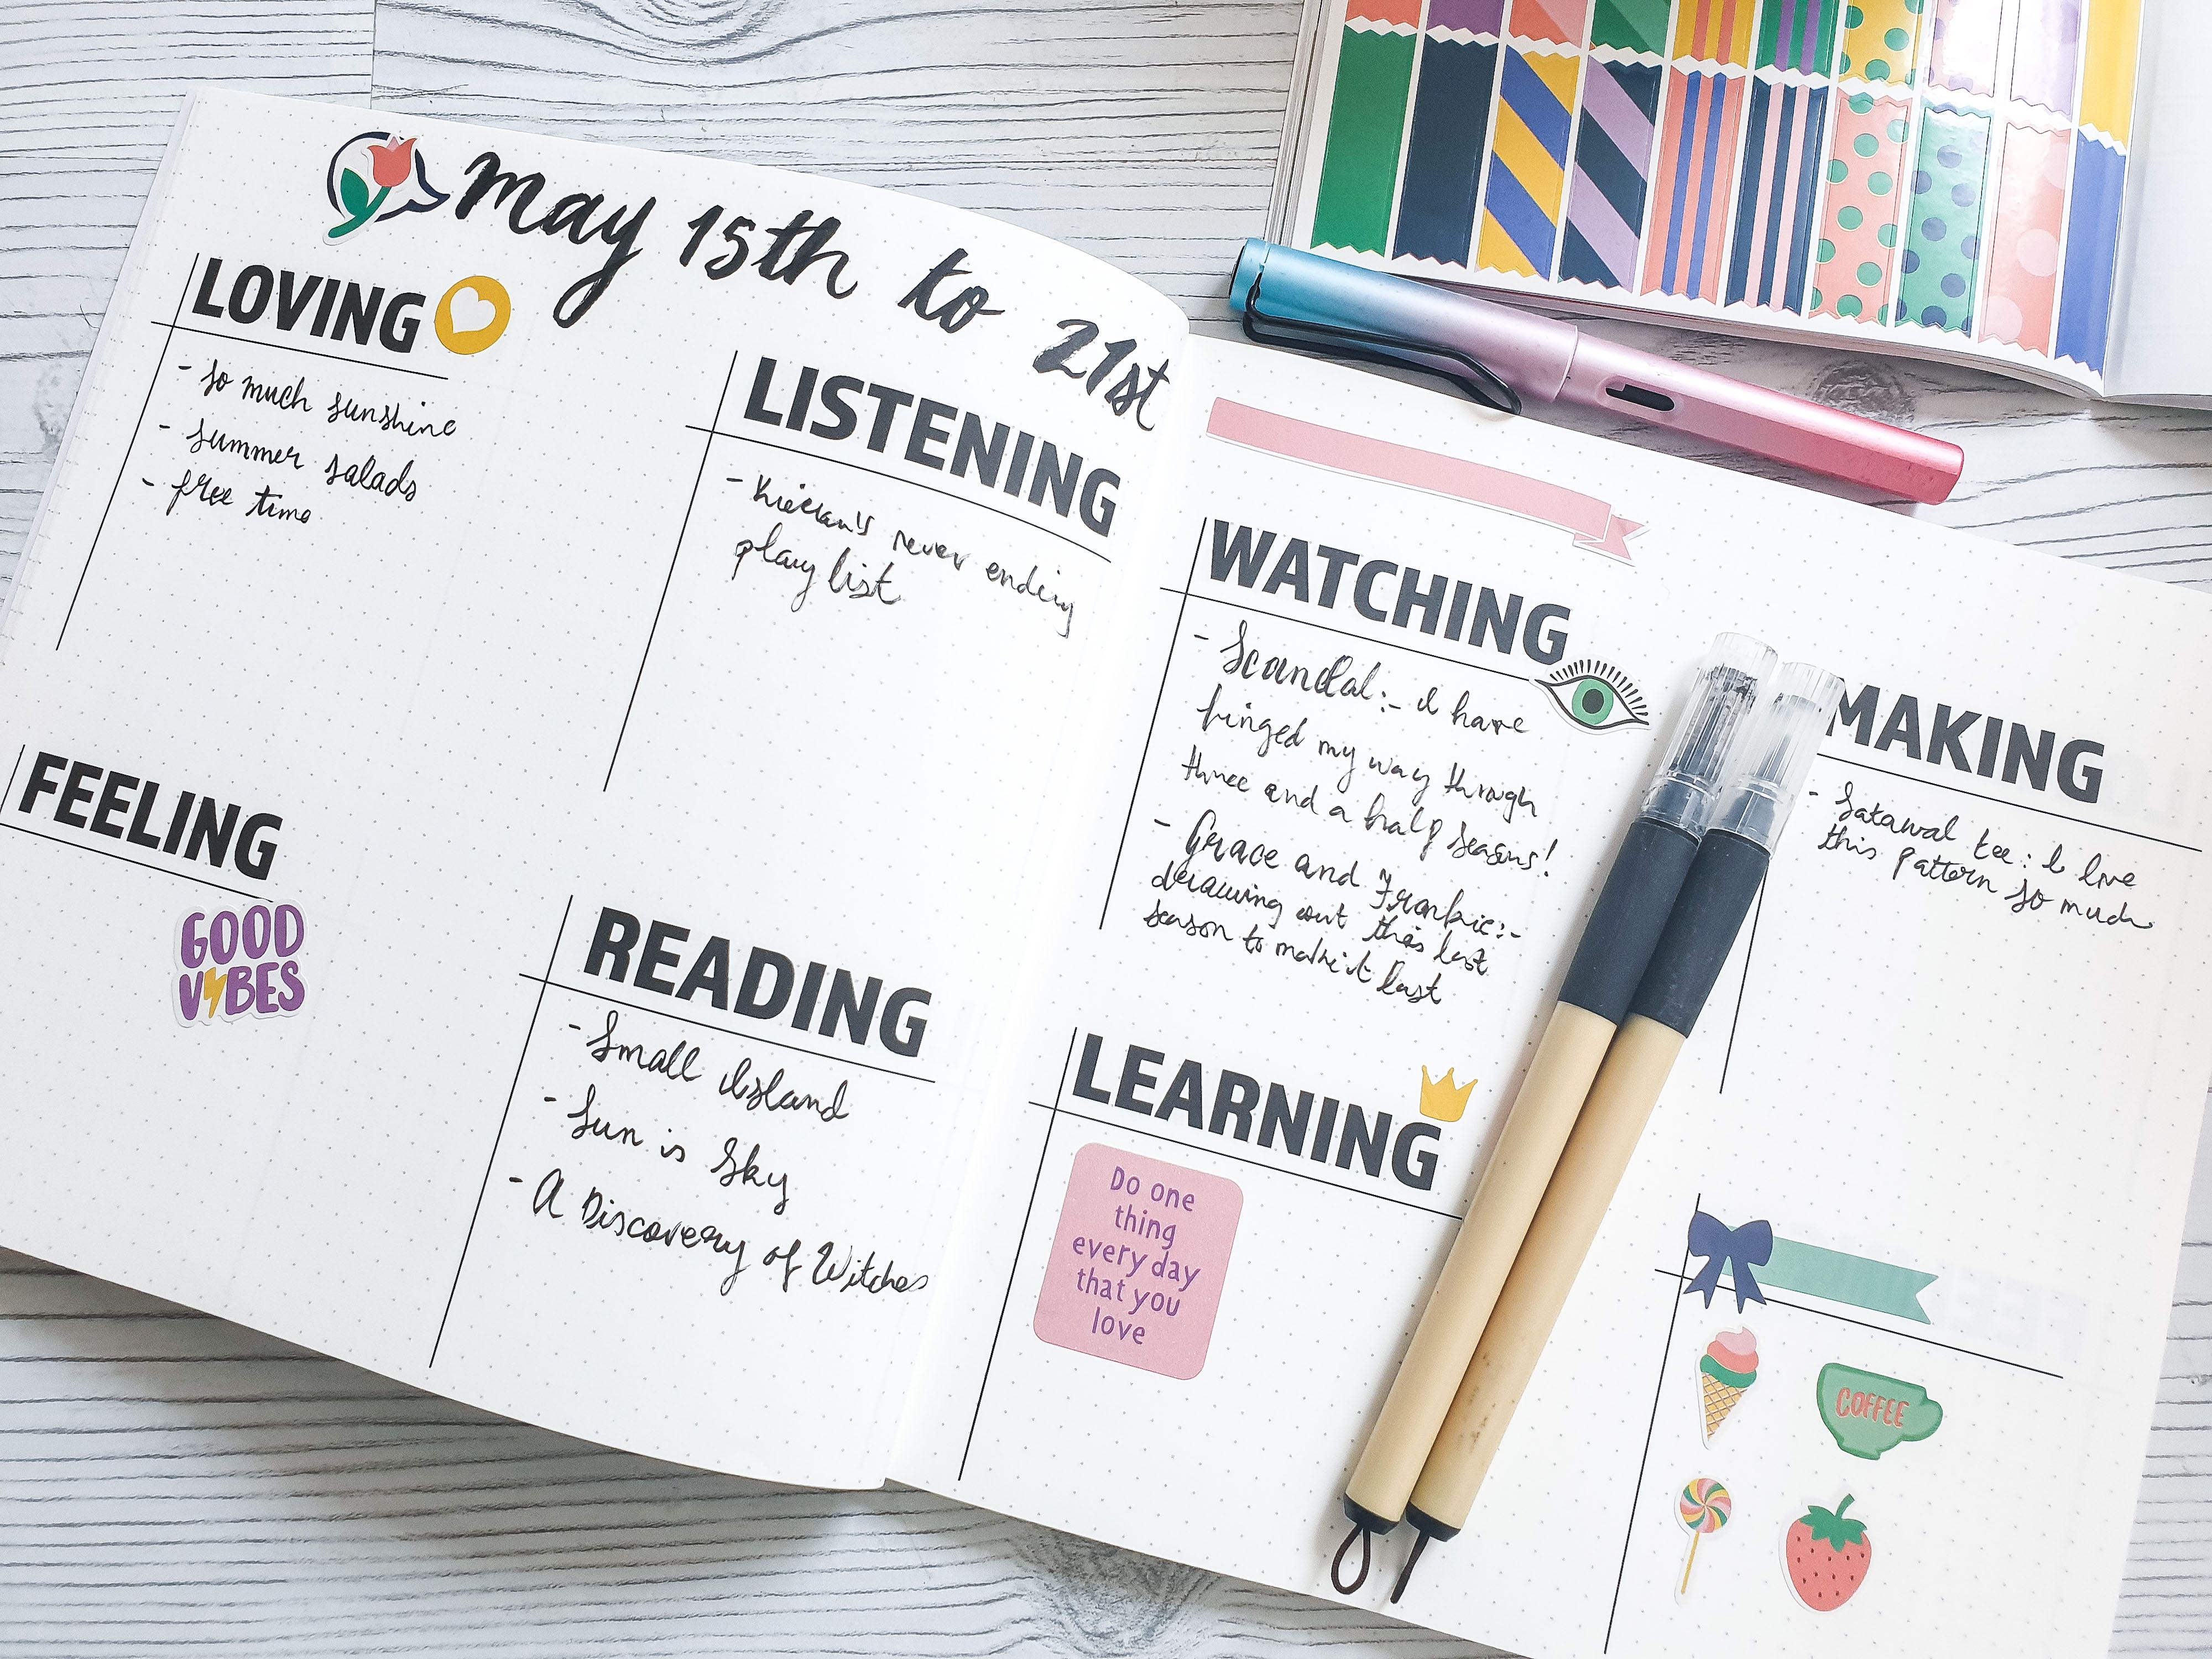 May 15th to 21st
LOVING
- so much sunshine
- summer salads
- free time
LISTENING
- Kieran's never ending
play list
FEELING
GOOD
VIBES
READING
- Small Island
- Sun is Sky
- A Discovery of Witches
WATCHING
- Scandal:- I have
binged my way through
three and a half seasons!
- Grace and Frankie:-
drawing out this last
season to make it last
MAKING
- Satawal tee: I love
this pattern so much
LEARNING
Do one
thing
every day
that you
love
COFFEE